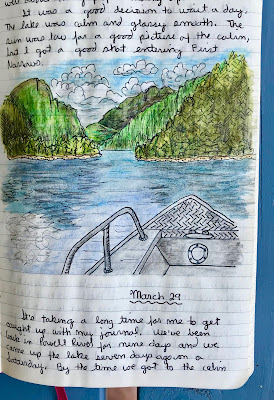 It was a good decision to wait a day.
The lake was calm and glassy smooth. The
sun was low for a good picture of the calm,
but I got a good shot entering First
Narrows.
March 29
It's taking a long time for me to get
caught up with my journal. We've been
back in Powell River for nine days and we
came up the lake seven days ago on a
Saturday. By the time we got to the cabin